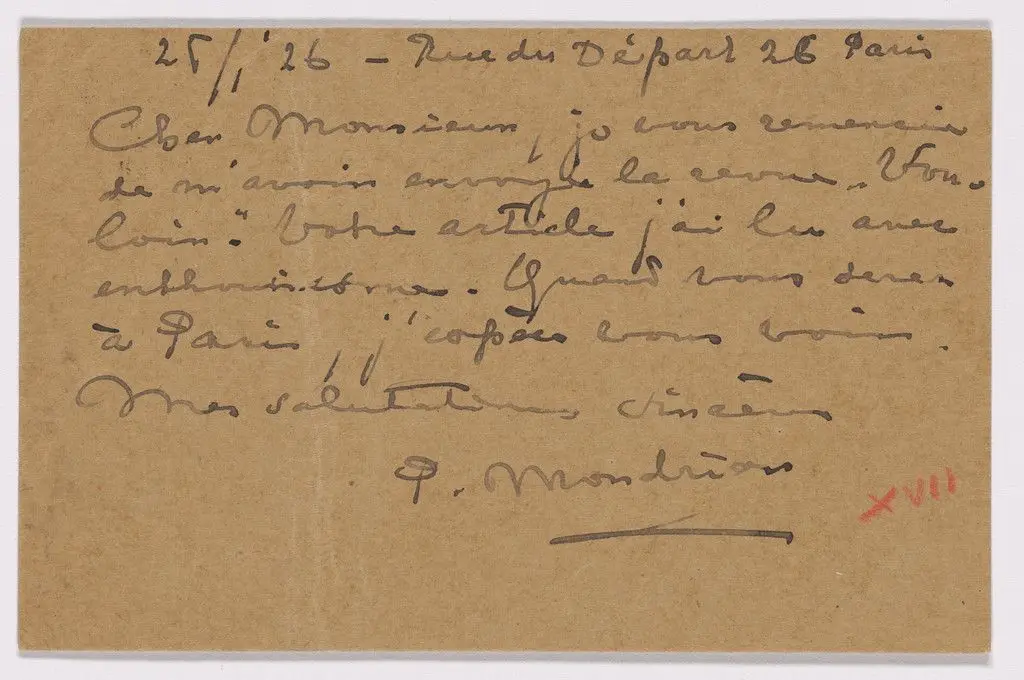 25/1 '26 – Rue du Départ 26 Paris
Cher Monsieur, je vous remercie
de m'avoir envoyé la revue „Vou-
loir." Votre article j'ai lu avec
enthousiasme. Quand vous serez
à Paris, j'espère vous voir.
Mes salutations sincères
P. Mondrian
XVII